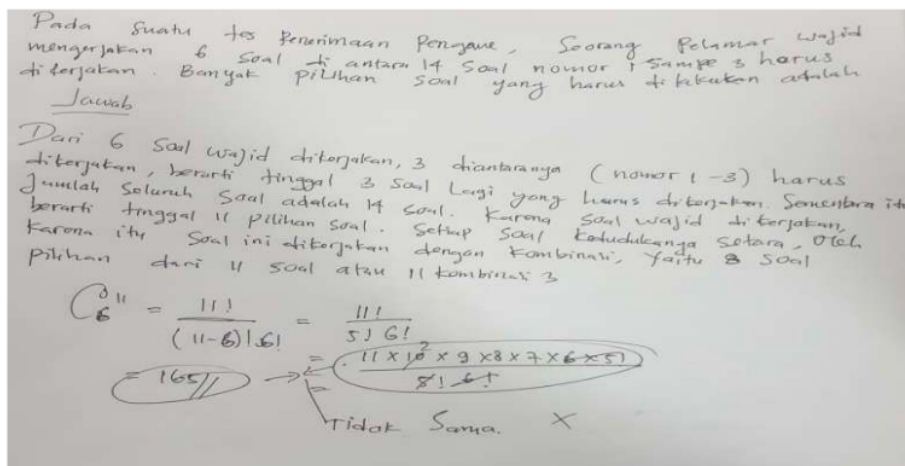 Pada Suatu tes Penerimaan Pengawe, Seorang Pelamar wajid
mengerjakan 6 Soal di antara 14 Soal nomor 1 Sampe 3 harus
di kerjakan. Banyak pilihan Soal yang harus di lakukan adalah
Jawab
Dari 6 Soal wajid dikerjakan, 3 diantaranya (nomor 1-3) harus
dikerjakan, berarti tinggal 3 Soal Lagi yang harus dikerjakan. Sementara itu
Jumlah Seluruh Soal adalah 14 Soal. Karena Soal wajid dikerjakan,
berarti tinggal 11 pilihan Soal. Setiap Soal Kedudukanya Setara, Oleh
Karena itu Soal ini dikerjakan dengan Kombinasi, Yaitu 8 Soal
Pilihan dari 11 Soal atau 11 Kombinasi 3
C 11 6 = 11! / (11-6)! 6! = 11! / 5! 6!
= 11 x 10 2 x 9 x 8 x 7 x 6 x 5! / 8! 6!
= 165//
Tidak Sama. X